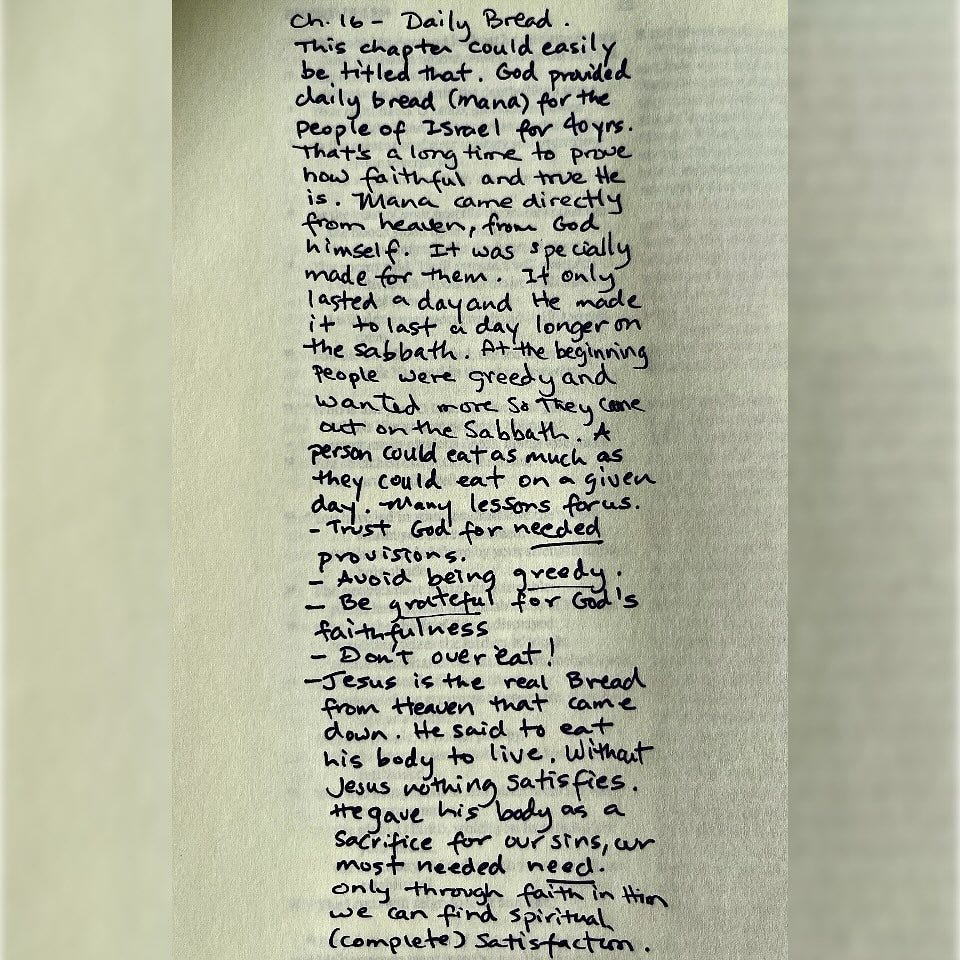 Ch. 16 - Daily Bread.
This chapter could easily
be titled that. God provided
daily bread (mana) for the
people of Israel for 40 yrs.
That's a long time to prove
how faithful and true He
is. Mana came directly
from heaven, from God
himself. It was specially
made for them. It only
lasted a day and He made
it to last a day longer on
the sabbath. At the beginning
people were greedy and
wanted more so they came
out on the Sabbath. A
person could eat as much as
they could eat on a given
day. Many lessons for us.
- Trust God for needed
provisions.
- Avoid being greedy.
- Be grateful for God's
faithfulness
- Don't over eat!
- Jesus is the real Bread
from Heaven that came
down. He said to eat
his body to live. Without
Jesus nothing satisfies.
He gave his body as a
sacrifice for our sins, our
most needed need.
only through faith in Him
we can find spiritual
(complete) satisfaction.